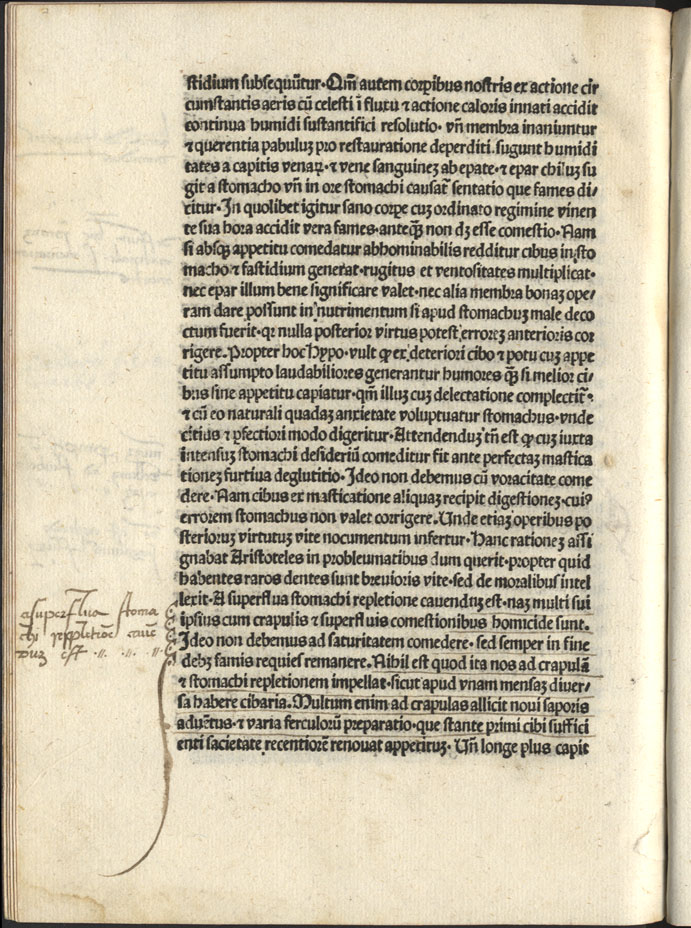 stidium subsequūtur·Qm̄ autem corꝑibus nostris ex actione cir
cumstantis aeris cū celesti ī fluxu ⁊ actione caloris innati accidit
continua humidi sustantifici resolutio· vn̄ membra inaniuntur
⁊ querentia pabuluꝫ pro restauratione deperditi. sugunt humidi
tates a capitis venaꝝ·⁊ vene sanguineꝫ ab epate·⁊ epar chiluꝫ su
git a stomacho vn̄ in ore stomachi causat̄ sentatio que fames di⸗
citur·In quolibet igitur sano corpe cuꝫ ordinato regimine viuen
te sua hora accidit vera fames·anteqꝫ̄ non dꝫ esse comestio·Nam
si absqꝫ appetitu comedatur abhominabilis redditur cibus in sto
macho ⁊ fastidium generat·rugitus et ventositates multiplicat·
nec epar illum bene significare valet·nec alia membra bonaꝫ ope⸗
ram dare possunt in nutrimentum si apud stomachuꝫ male deco
ctum fuerit·qꝛ nulla posterior virtus potest erroreꝫ anterioris cor
rigere·Propter hoc hypo·vult ꝙ ex deteriori cibo ⁊ potu cuꝫ appe
titu assumpto laudabiliores generantur humores qꝫ̄ si melior ci⸗
bus sine appetitu capiatur·qm̄ illuꝫ cuꝫ delectatione complectit̄·
⁊ cū eo naturali quadaꝫ anxietate voluptuatur stomachus·vnde
citius ⁊ ꝑfectiori modo digeritur·Attendenduꝫ tn̄ est ꝙ cuꝫ iuxta
intensuꝫ stomachi desideriū comeditur fit ante perfectaꝫ mastica
tioneꝫ furtiua deglutitio·Ideo non debemus cū voracitate come
dere·Nam cibus ex masticatione aliquaꝫ recipit digestioneꝫ·cui⁹
errorem stomachus non valet corrigere·Unde etiaꝫ operibus po
sterioruꝫ virtutuꝫ vite nocumentum infertur·Hanc rationeꝫ assi
gnabat Aristoteles in probleumatibus dum querit·propter quid
habentes raros dentes sunt breuioris vite·sed de moralibus intel
lexit·A superflua stomachi repletione cauenduꝫ est·naꝫ multi sui
ipsius cum crapulis ⁊ superfluis comestionibus homicide sunt.
Ideo non debemus ad saturitatem comedere·sed semper in fine
debꝫ famis requies remanere·Nihil est quod ita nos ad crapulā
⁊ stomachi repletionem impellat·sicut apud vnam mensaꝫ diuer⸗
sa habere cibaria·Multum enim ad crapulas allicit noui saporis
aduētus·⁊ varia ferculorū preparatio·que stante primi cibi suffici
enti sacietate recentiorē renouat appetituꝫ· Un̄ longe plus capit
a superflua stoma
chi repletiōe caue
duꝫ est